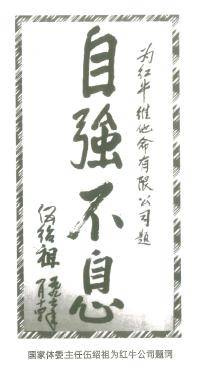 为红牛维他命有限公司题
自強不息
伍绍祖
国家体委主任伍绍祖为红牛公司题词